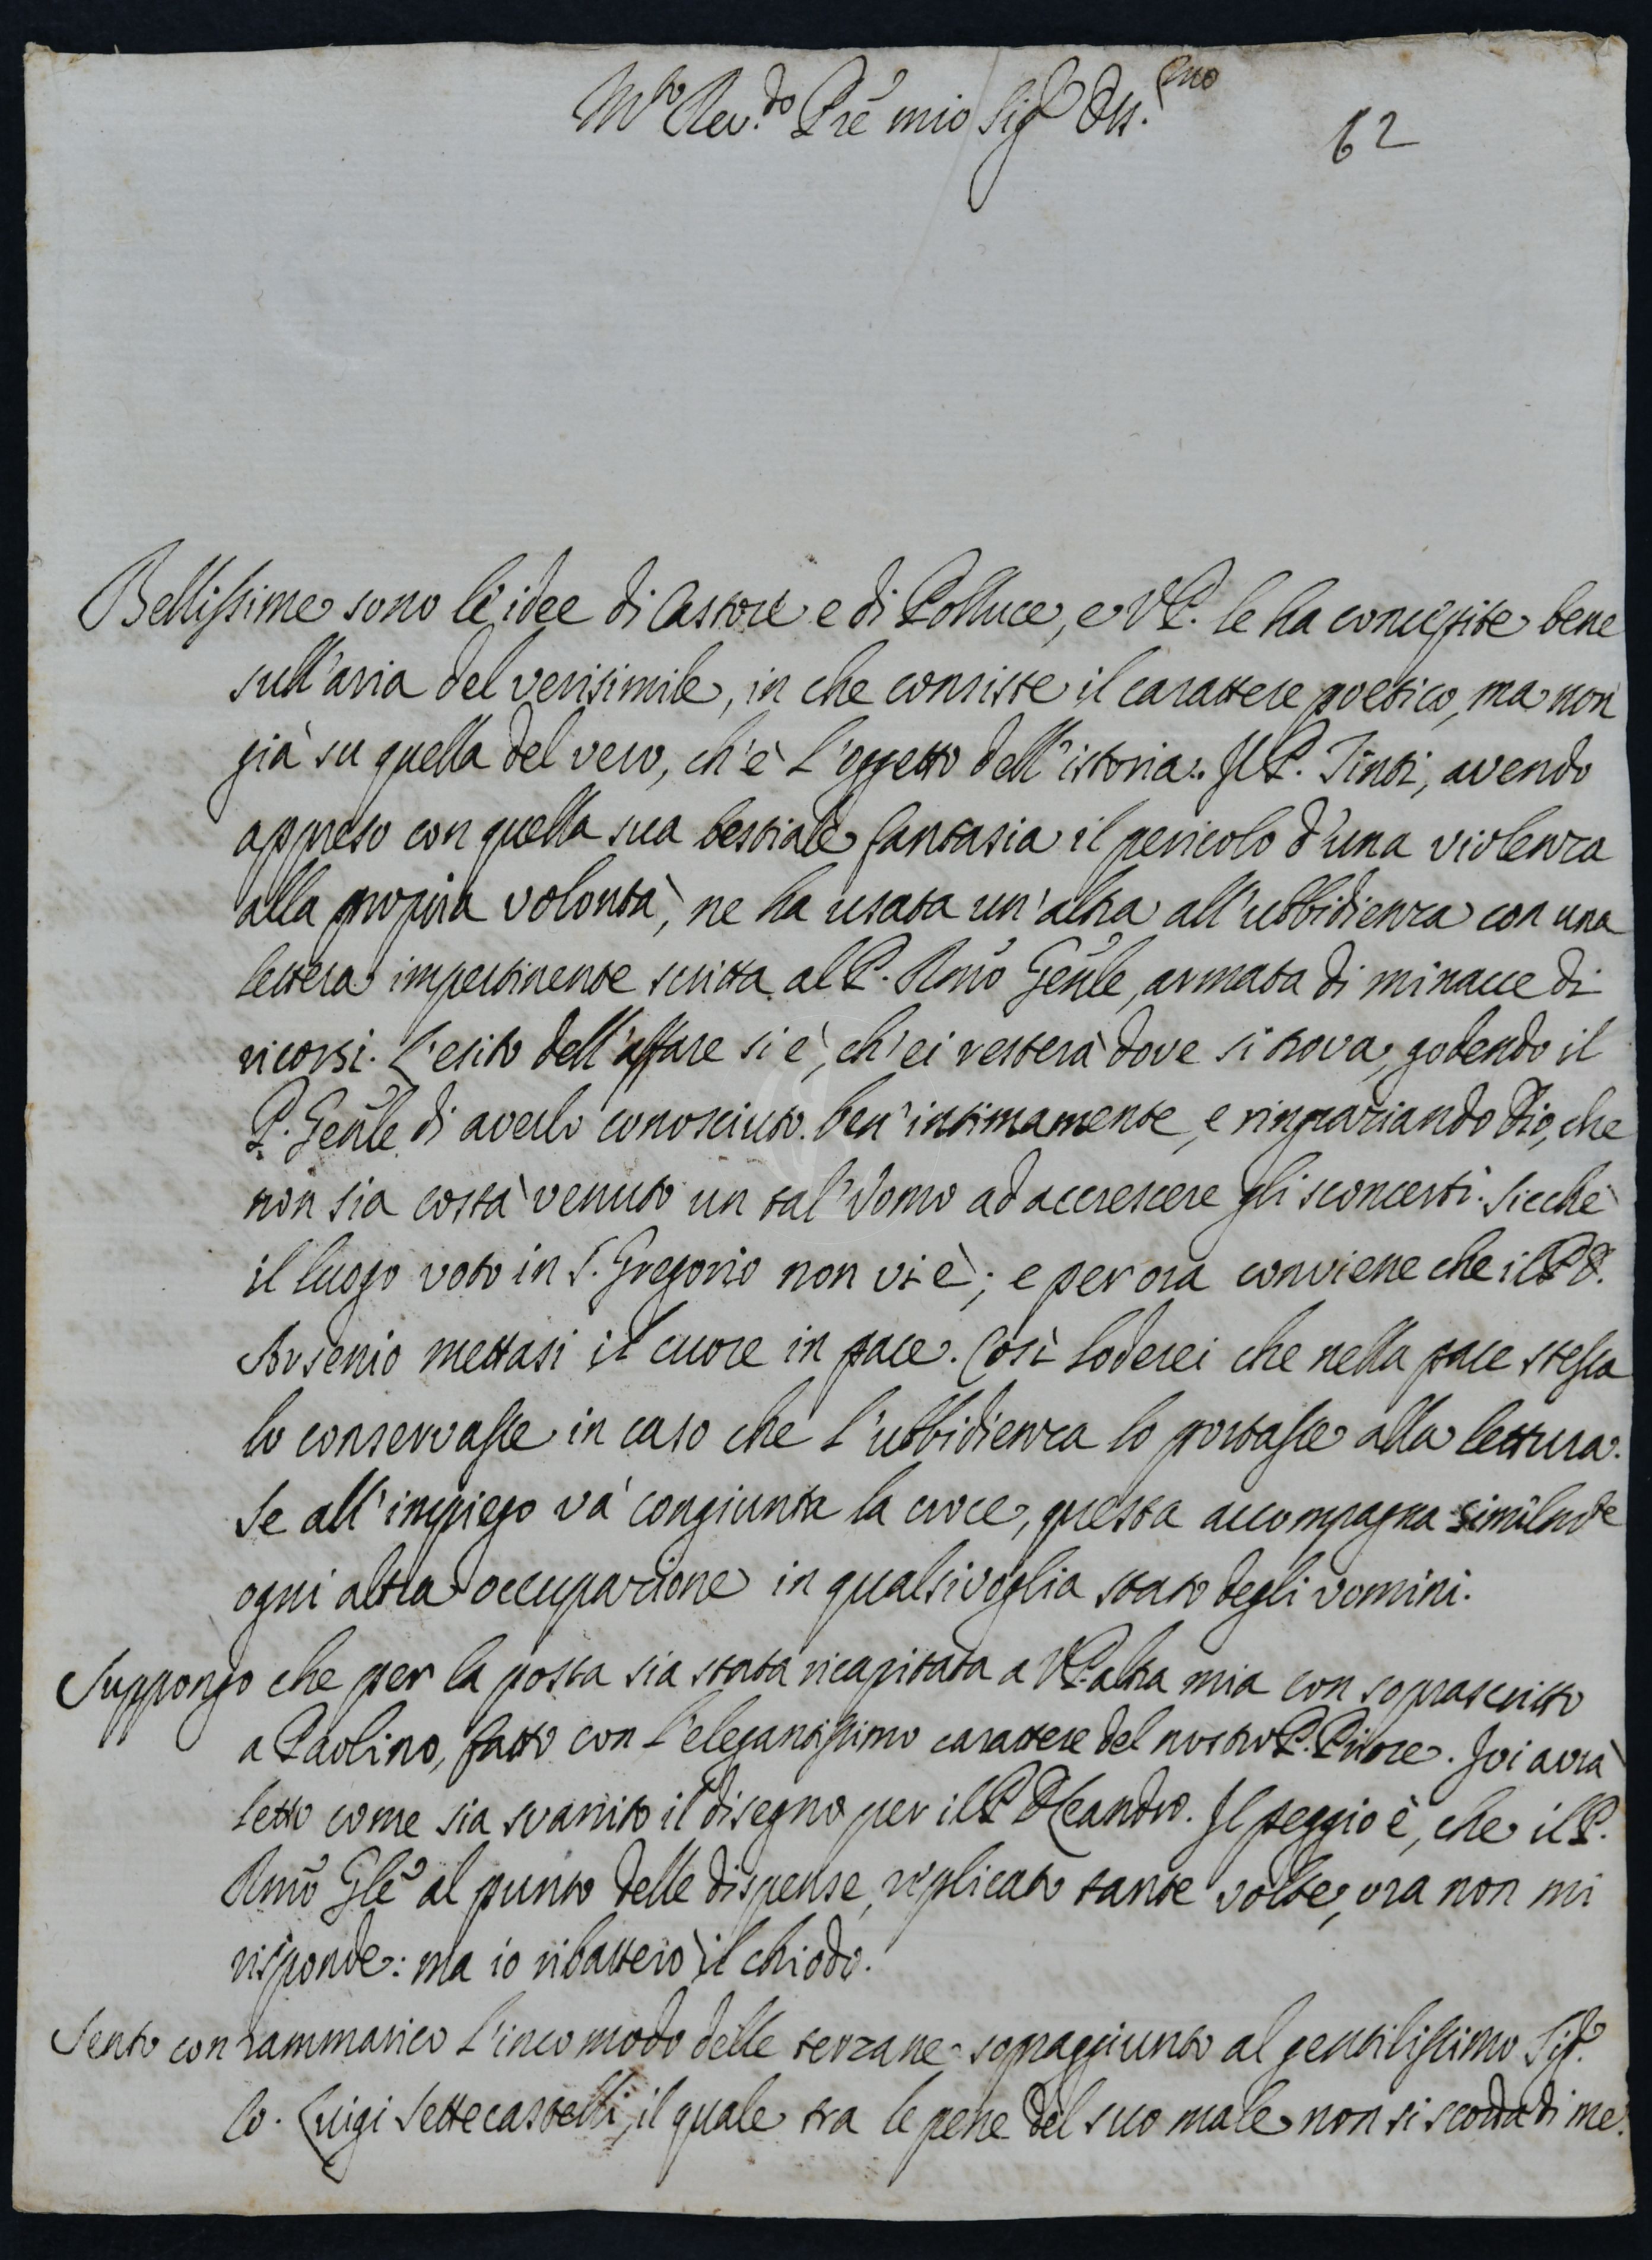 M.to Rev.do Prẽ mio Sig.r Oss.mo
62
Bellissime sono le idee di Castore e di Polluce, e V.P. le ha concepite bene
sull'aria del verisimile, in che consiste il carattere poetico, ma non
già su quella del vero, ch'è l'oggetto dell'istoria. Il P. Tinti, avendo
appreso con quella sua bestiale fantasia il pericolo d'una violenza
alla propria volontà, ne ha usata un'altra all'ubbidienza con una
lettera impertinente scritta al P. Rmõ Genl̃e, armata di minacce di
ricorsi. L'esito dell'affare si è, ch'ei resterà dove si trova, godendo il
P. Genl̃e di averlo conosciuto ben'intimamente, e ringraziando Dio, che
non sia costà venuto un tal'Uomo ad accrescere gli sconcerti. Sicchè
il luogo voto in S. Gregorio non vi è; e per ora conviene che il P.D.
Arsenio mettasi il cuore in pace. Così loderei che nella pace stessa
lo conservasse in caso che l'ubbidienza lo portasse alla lettura.
Se all'impiego và congiunta la croce, questa accompagna similm̃te
ogni altra occupazione in qualsivoglia stato degli uomini.
Suppongo che per la posta sia stata ricapitata a V.P. altra mia con soprascritto
a Paolino, fatto con l'elegantissimo carattere del nostro P. Priore. Ivi avrà
letto come sia svanito il disegno per il P.D. Leandro. Il peggio è, che il P.
Rmõ Glẽ al punto delle dispense, replicato tante volte, ora non mi
risponde: ma io ribatterò il chiodo.
Sento con rammarico l'incomodo delle terzane sopraggiunto al gentilissimo Sig.r
Co. Luigi Settecastelli, il quale tra le pene del suo male non si scorda di me.